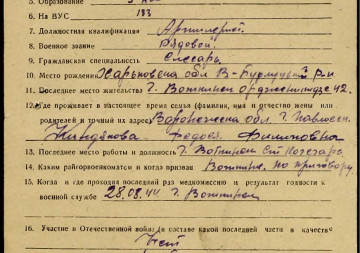 5. Образование
6. На ВУС 133
7. Должностная квалификация Артиллерист.
8. Военное звание Рядовой.
9. Гражданская специальность Слесарь
10. Место рождения Харьковска обл В-Бурлуцкий р-н
11. Последнее место жительства г. Воткинск Орджоникидзе 42.
12. Где проживает в настоящее время семья (фамилия, имя и отчество жены или
родичей и точный их адрес) Воронежска обл. г. Павловск
Федося Филиповна
13. Последнее место работы и должность г. Воткинск
14. Каким райгорвоенкоматом и когда призван Воткинск. по приговору.
15. Когда и где проходил последний раз медкомиссию и результат годности к
военной службе 28.08.44 г. Воткинск
16. Участие в Отечественной войне (в составе какой последней части и в качестве
Нет